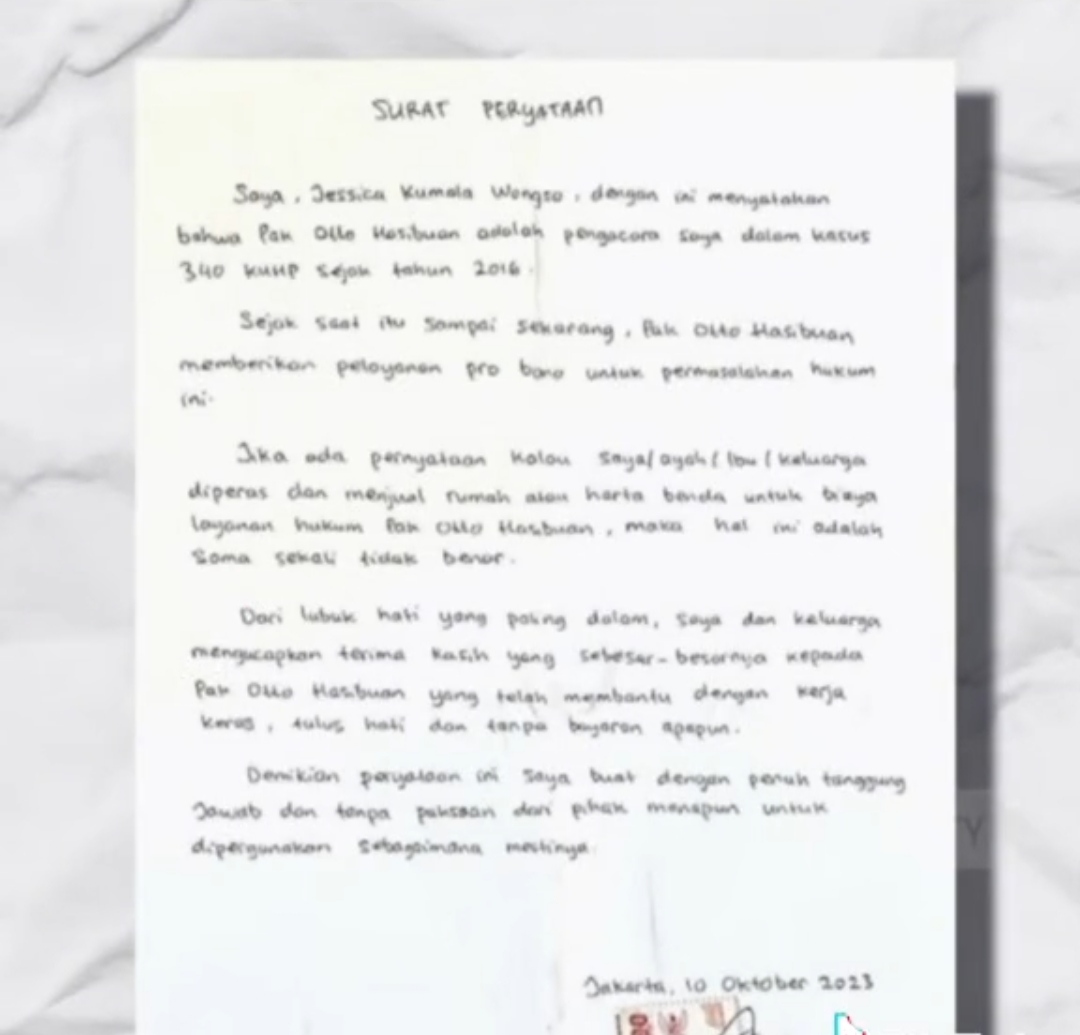 SURAT PERYATAAN
Saya, Jessica Kumala Wongso, dengan ini menyatakan
bahwa Pak Otto Hasibuan adalah pengacara saya dalam kasus
340 KUHP sejak tahun 2016.
Sejak saat itu sampai sekarang, Pak Otto Hasibuan
memberikan pelayanan pro bono untuk permasalahan hukum
ini.
Jika ada pernyataan kalau saya/ayah/Ibu/keluarga
diperas dan menjual rumah atau harta benda untuk biaya
layanan hukum Pak Otto Hasibuan, maka hal ini adalah
Sama sekali tidak benar.
Dari lubuk hati yang paling dalam, saya dan keluarga
mengucapkan terima kasih yang sebesar-besarnya kepada
Pak Otto Hasibuan yang telah membantu dengan kerja
keras, tulus hati dan tanpa bayaran apapun.
Demikian peryataan ini saya buat dengan penuh tanggung
Jawab dan tanpa paksaan dari pihak manapun untuk
dipergunakan sebagaimana mestinya.
Jakarta, 10 Oktober 2023